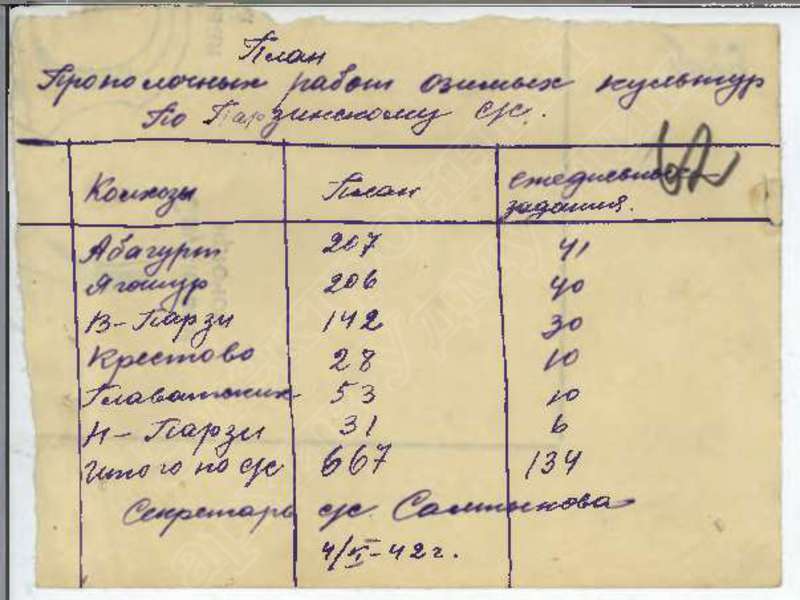 План
Прополочных работ озимых культур
по Парзинскому с/с.
Колхозы План ежедневные
задания.
Абагурт 207 41
Ягошур 206 40
В-Парзи 142 30
Крестово 28 10
Главатских 53 10
Н-Парзи 31 6
Итого по с/с 667 134
Секретарь с/с Салтыкова
4/VI-42 г.